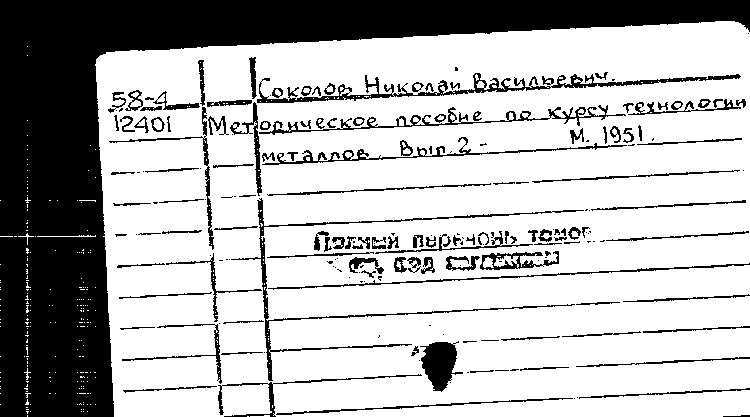 58-4
12401
Соколов Николай Васильевич.
Методическое пособие по курсу технологии
металлов. Вып. 2 - М., 1951.
Полный перечень томов
см. под заглавием